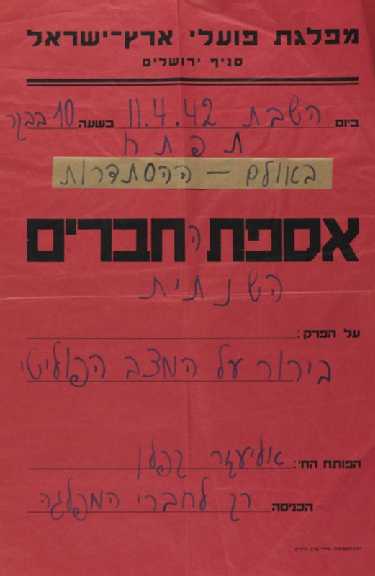 מפלגת פועלי ארץ־ישראל
סניף ירושלים
ביום השבת 11.4.42 בשעה 10 בבקר
תפתח
באולם - ההסתדרות
אספת החברים
השנתית
על הפרק:
בירור על המצב הפוליטי
הפותח הח': אליעזר קפלן
הכניסה: רק לחברי המפלגה